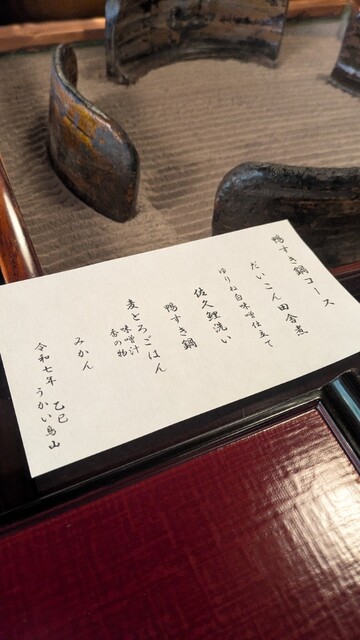 鴨すき鍋コース
だいこん田舎煮
ゆりね白味噌仕立て
佐久鯉洗い
鴨すき鍋
麦とろごはん
味噌汁
香の物
みかん
令和七年 乙巳
うかい鳥山